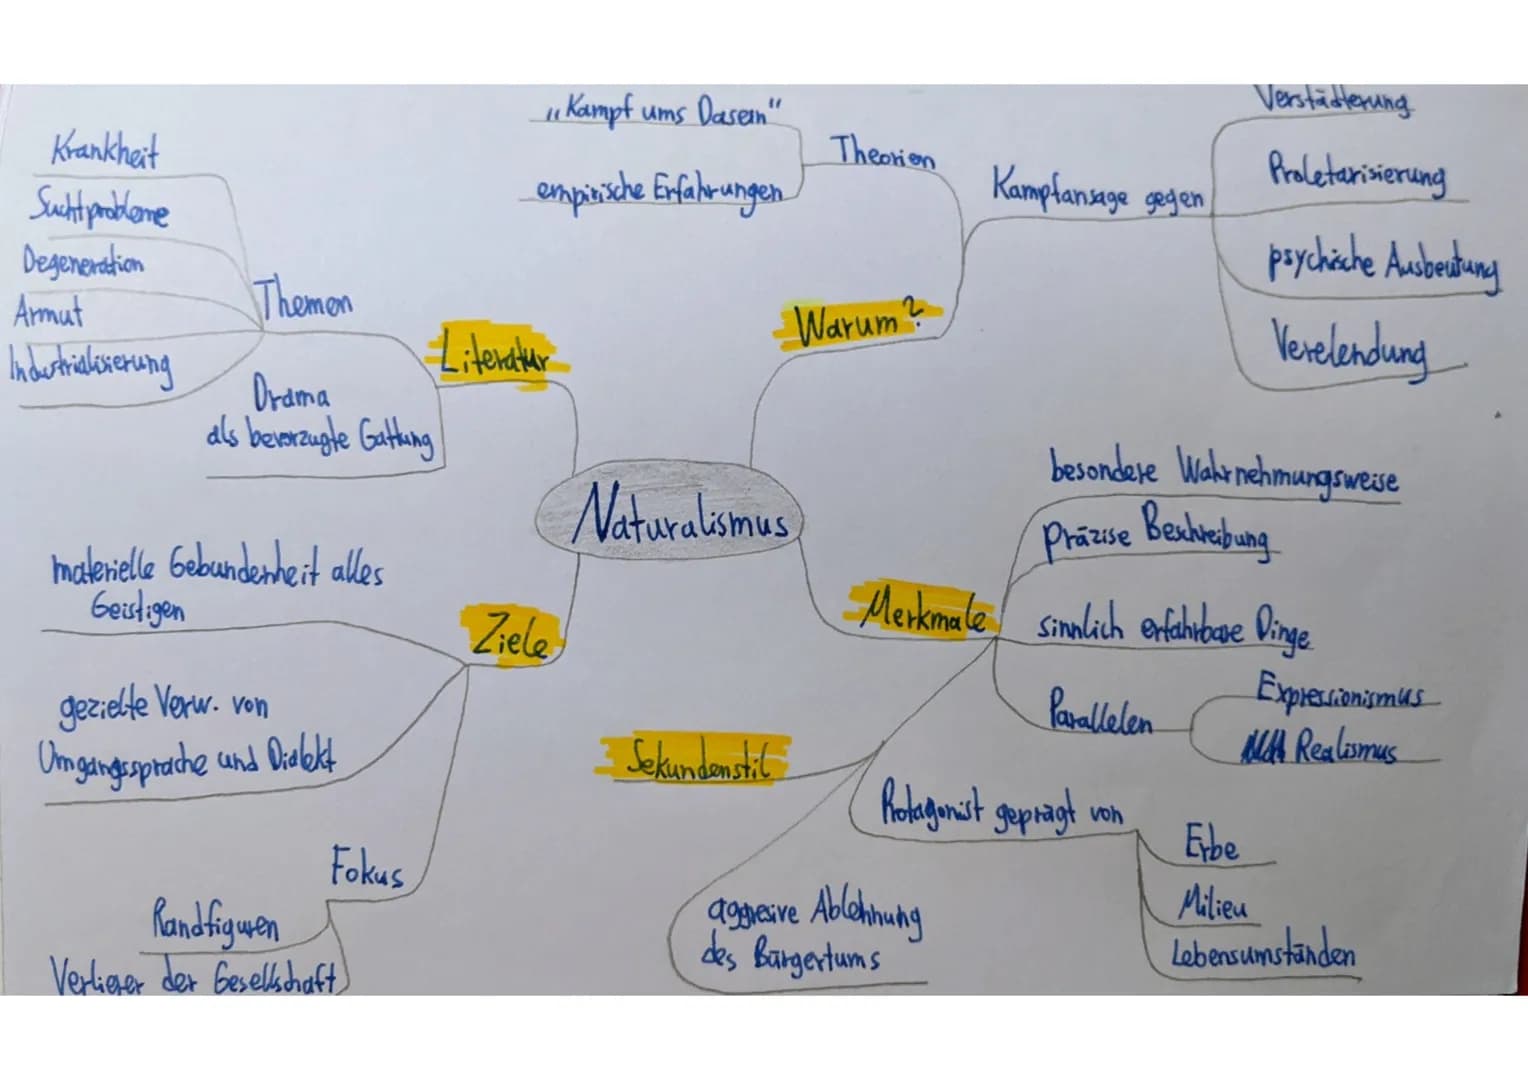 Naturalismus
Literatur
Themen
Krankheit
Suchtprobleme
Degeneration
Armut
Industrialisierung
Drama
als bevorzugte Gattung
Warum?
Theorien
„Kampf ums Dasein"
empirische Erfahrungen
Kampfansage gegen
Verstädterung
Proletarisierung
psychische Ausbeutung
Verelendung
Merkmale
besondere Wahrnehmungsweise
präzise Beschreibung
sinnlich erfahrbare Dinge
Parallelen
Expressionismus
Realismus
Protagonist geprägt von
Erbe
Milieu
Lebensumständen
aggresive Ablehnung
des Bürgertums
Sekundenstil
Ziele
materielle Gebundenheit alles
Geistigen
gezielte Verw. von
Umgangssprache und Dialekt
Fokus
Randfiguren
Verlierer der Gesellschaft